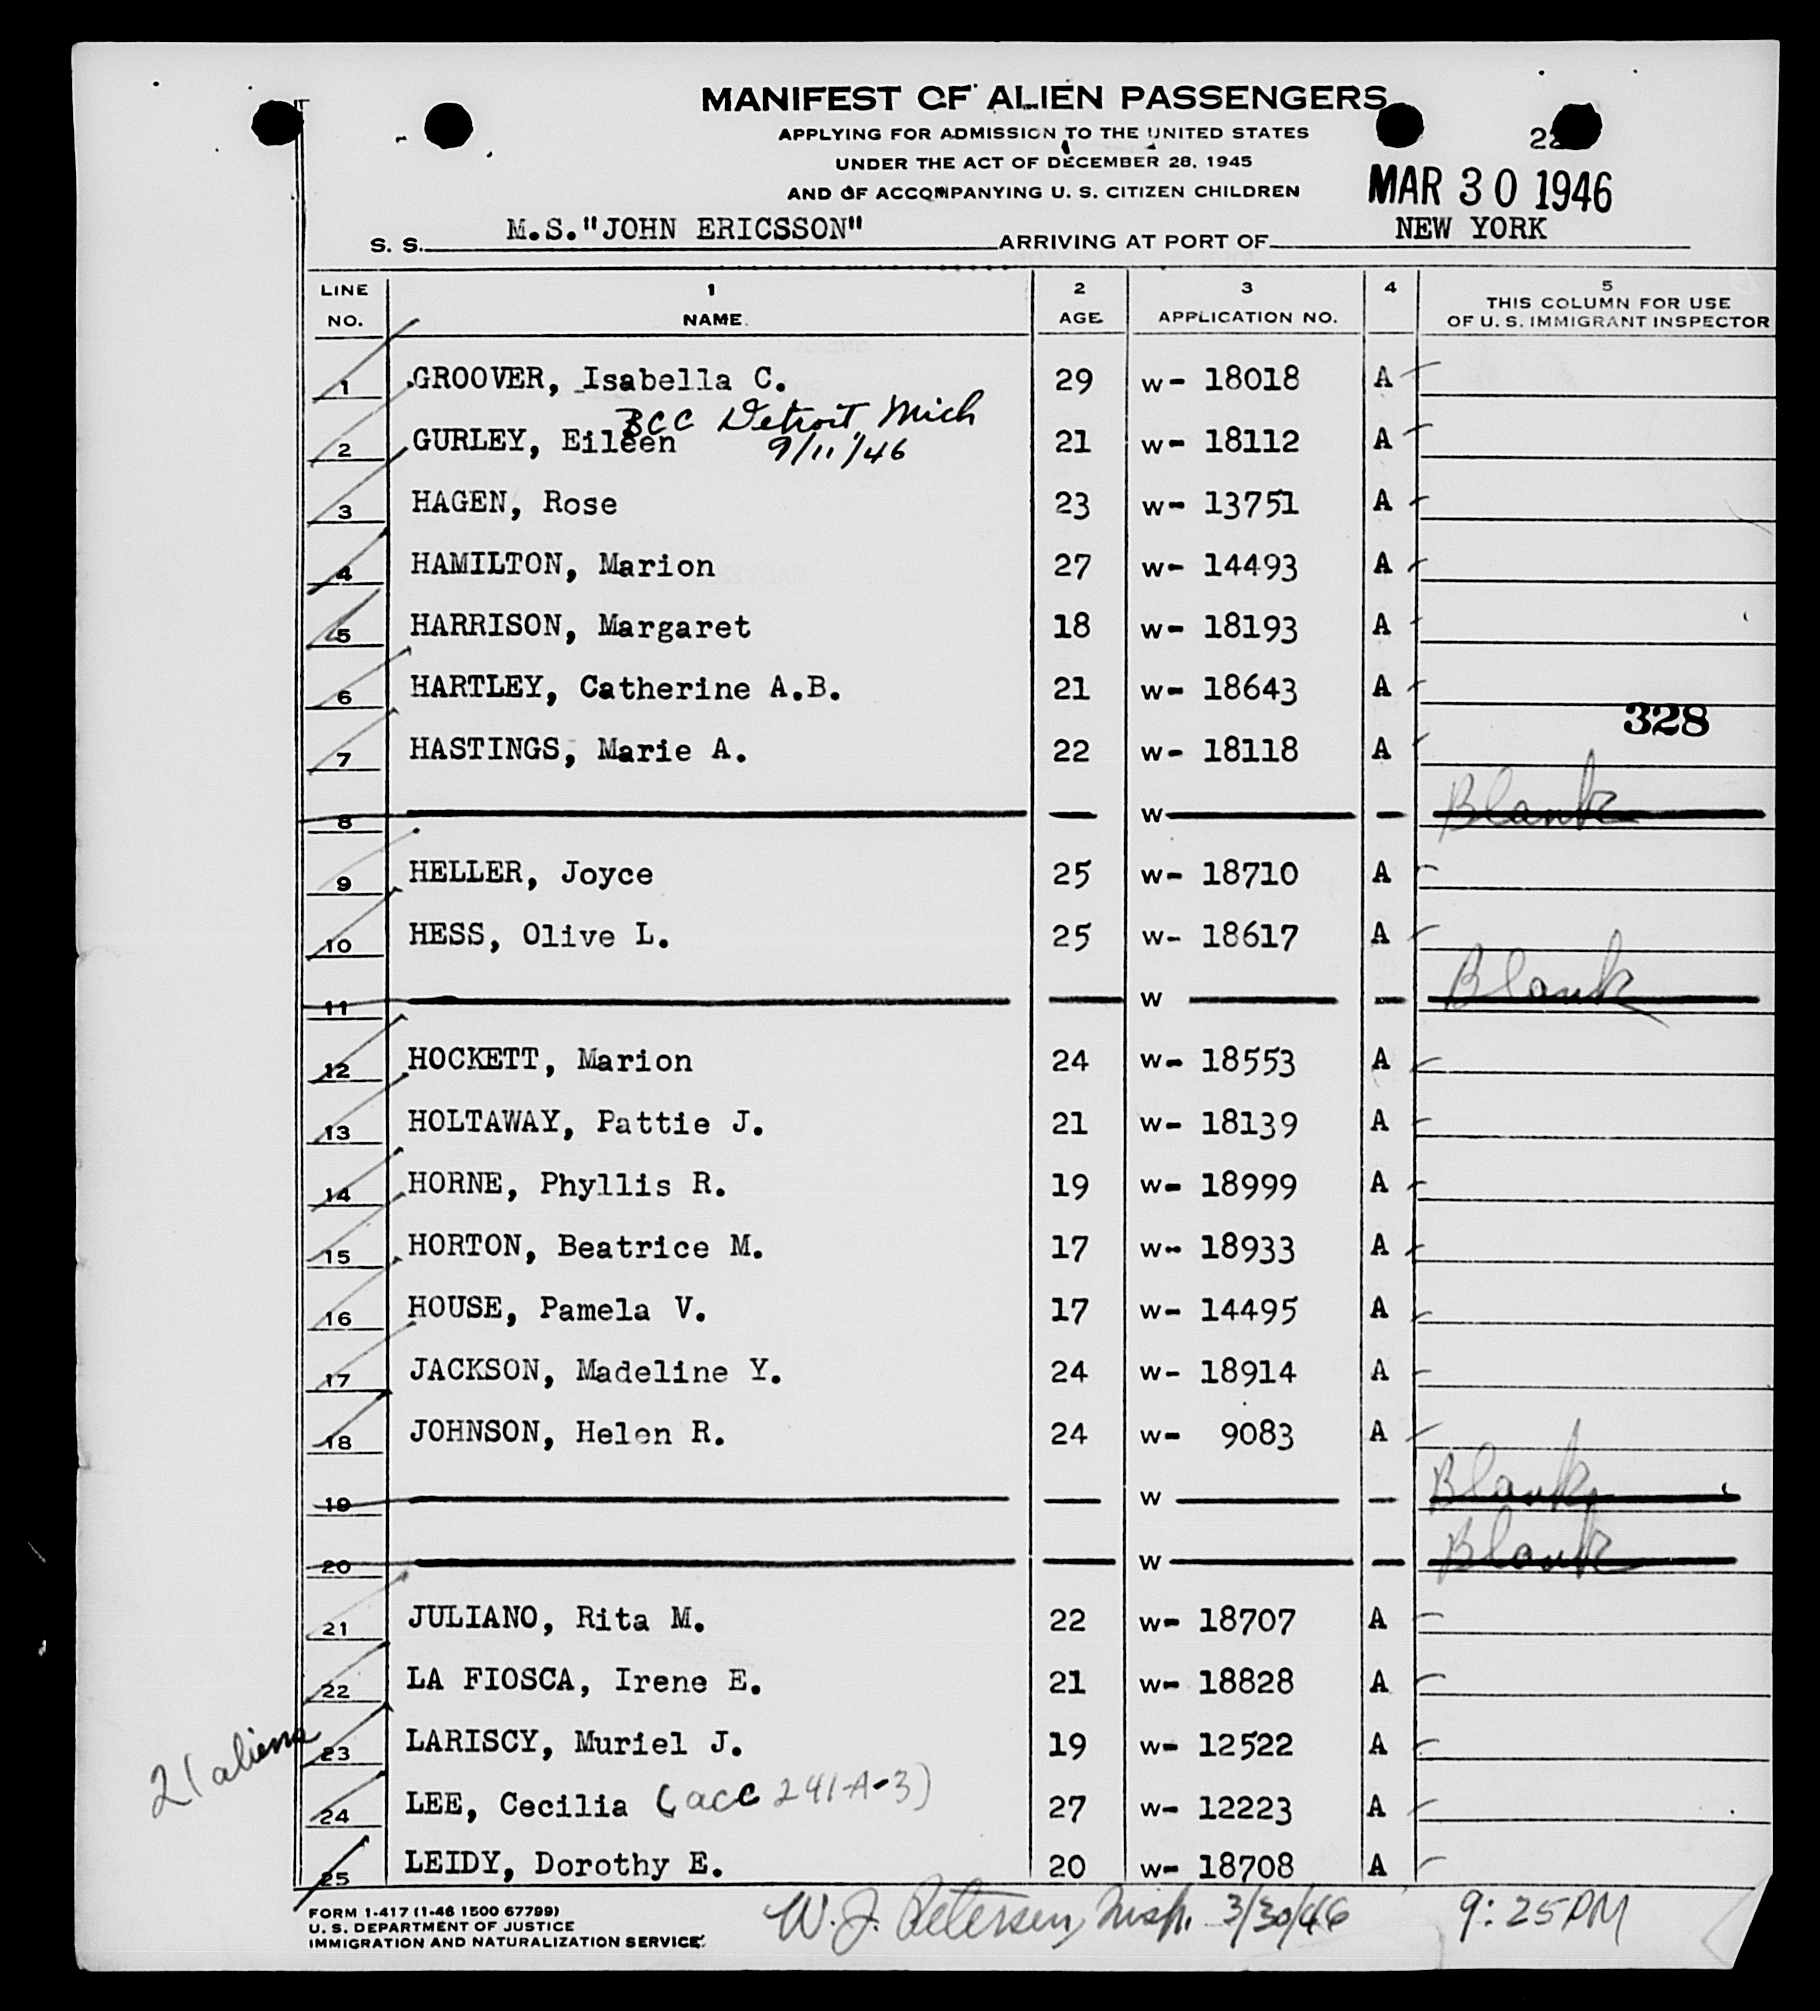 MANIFEST OF ALIEN PASSENGERS
APPLYING FOR ADMISSION TO THE UNITED STATES
UNDER THE ACT OF DECEMBER 28, 1945
AND OF ACCOMPANYING U. S. CITIZEN CHILDREN
22
MAR 30 1946
S. S. M.S."JOHN ERICSSON" ARRIVING AT PORT OF NEW YORK
LINE NO. 1 NAME 2 AGE 3 APPLICATION NO. 4 5 THIS COLUMN FOR USE OF U. S. IMMIGRANT INSPECTOR
1 GROOVER, Isabella C. 29 W- 18018 A
BCC Detroit, Mich
2 GURLEY, Eileen 9/11/46 21 W- 18112 A
3 HAGEN, Rose 23 W- 13751 A
4 HAMILTON, Marion 27 W- 14493 A
5 HARRISON, Margaret 18 W- 18193 A
6 HARTLEY, Catherine A.B. 21 W- 18643 A
328
7 HASTINGS, Marie A. 22 W- 18118 A
8 W Blank
9 HELLER, Joyce 25 W- 18710 A
10 HESS, Olive L. 25 W- 18617 A
11 W Blank
12 HOCKETT, Marion 24 W- 18553 A
13 HOLTAWAY, Pattie J. 21 W- 18139 A
14 HORNE, Phyllis R. 19 W- 18999 A
15 HORTON, Beatrice M. 17 W- 18933 A
16 HOUSE, Pamela V. 17 W- 14495 A
17 JACKSON, Madeline Y. 24 W- 18914 A
18 JOHNSON, Helen R. 24 W- 9083 A
19 W Blank
20 W Blank
21 JULIANO, Rita M. 22 W- 18707 A
22 LA FIOSCA, Irene E. 21 W- 18828 A
21 aliens
23 LARISCY, Muriel J. 19 W- 12522 A
24 LEE, Cecilia (acc 241-A-3) 27 W- 12223 A
25 LEIDY, Dorothy E. 20 W- 18708 A
FORM 1-417 (1-46 1500 67799)
U. S. DEPARTMENT OF JUSTICE
IMMIGRATION AND NATURALIZATION SERVICE
W. J. Petersen, Insp. 3/30/46 9:25 PM